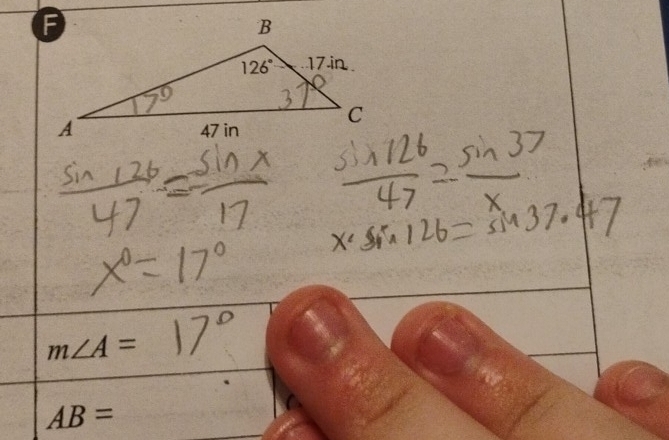 F
B
126° 17 in.
17° 37°
A C
47 in
sin 126 / 47 = sin x / 17
sin 126 / 47 = sin 37 / x
x° = 17°
x · sin 126 = sin 37 · 47
m∠A = 17°
AB =